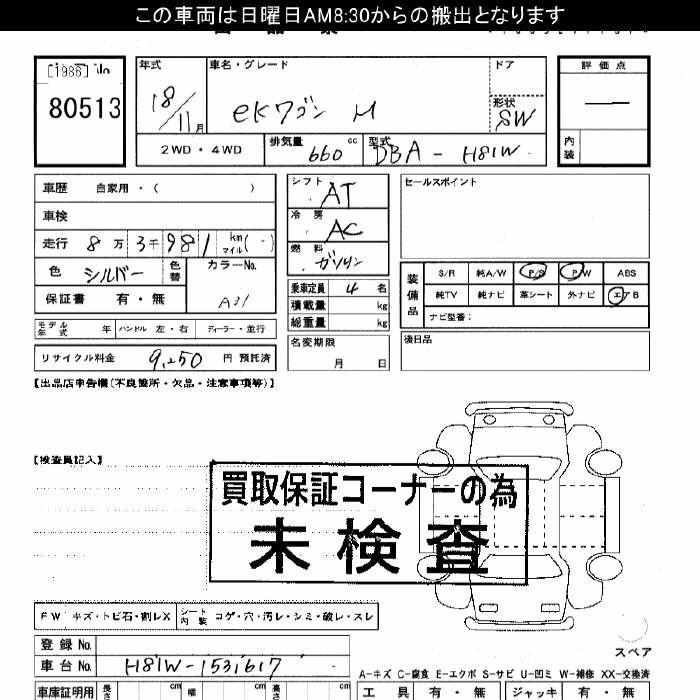 この車両は日曜日AM8:30からの搬出となります
[1986] No
80513
年式 車名・グレード ドア 評価点
18/11月 eKワゴン M 形状 SW
2WD・4WD 排気量 660 cc 型式 DBA-H81W 内装
車歴 自家用・( ) シフト AT セールスポイント
車検 冷房 AC
走行 8万3千981 km マイル(-) 燃料 ガソリン
色 シルバー 色替 カラーNo. A31
装備品 S/R 純A/W P/S P/W ABS
保証書 有・無 乗車定員 4名 純TV 純ナビ 革シート 外ナビ エアB
積載量 kg ナビ型番:
モデル年式 年 ハンドル 左・右 ディーラー・並行 総重量 kg
リサイクル料金 9,250 円 預託済 名変期限 月 日 後日品
【出品店申告欄(不良箇所・欠品・注意事項等)】
【検査員記入】
買取保証コーナーの為
未検査
FW キズ・トビ石・割レX シート内装 コゲ・穴・汚レ・シミ・破レ・スレ
登録No.
スペア
車台No. H81W-1531617
A-キズ C-腐食 E-エクボ S-サビ U-凹ミ W-補修 XX-交換済
車庫証明用 長さ cm 幅 cm 高さ cm 工具 有・無 ジャッキ 有・無